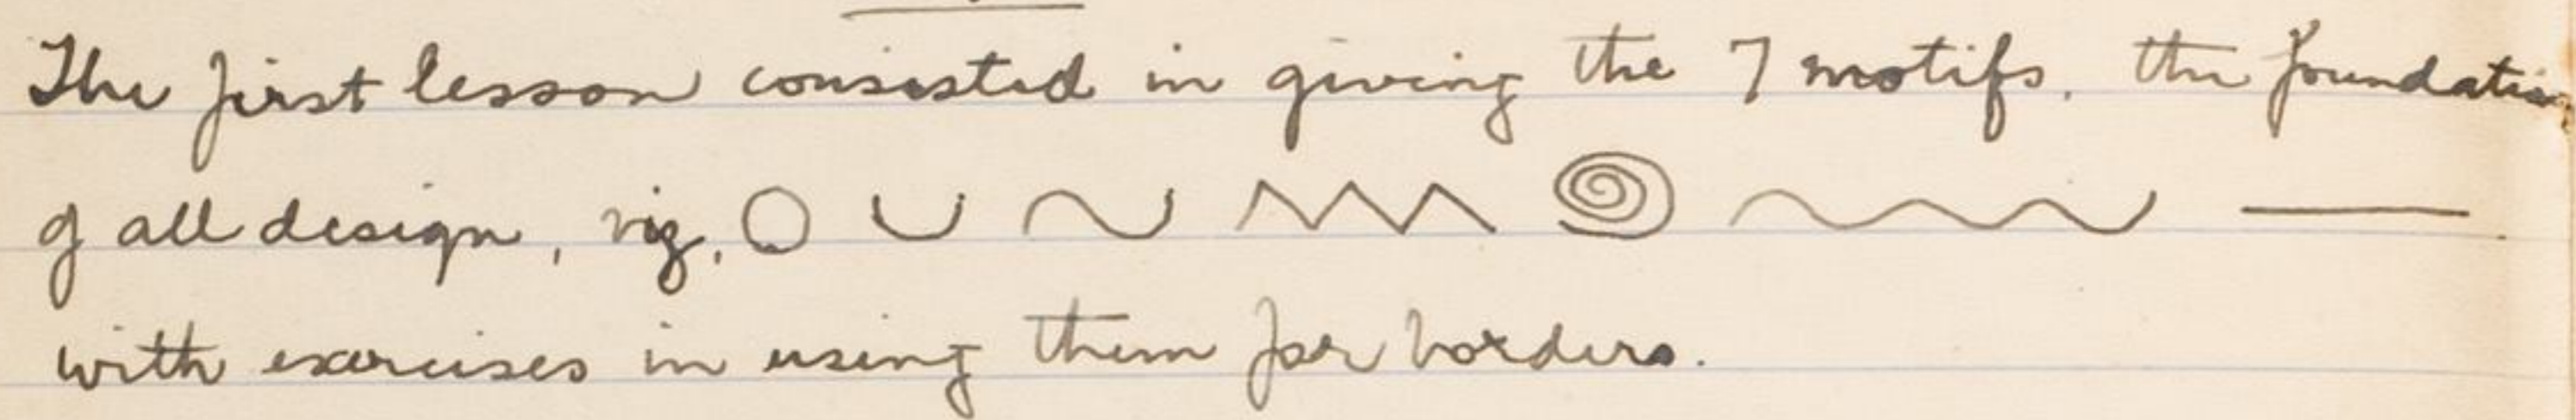 The first lesson consisted in giving the 7 motifs, the foundation
of all design, viz,
with exercises in using them for borders.